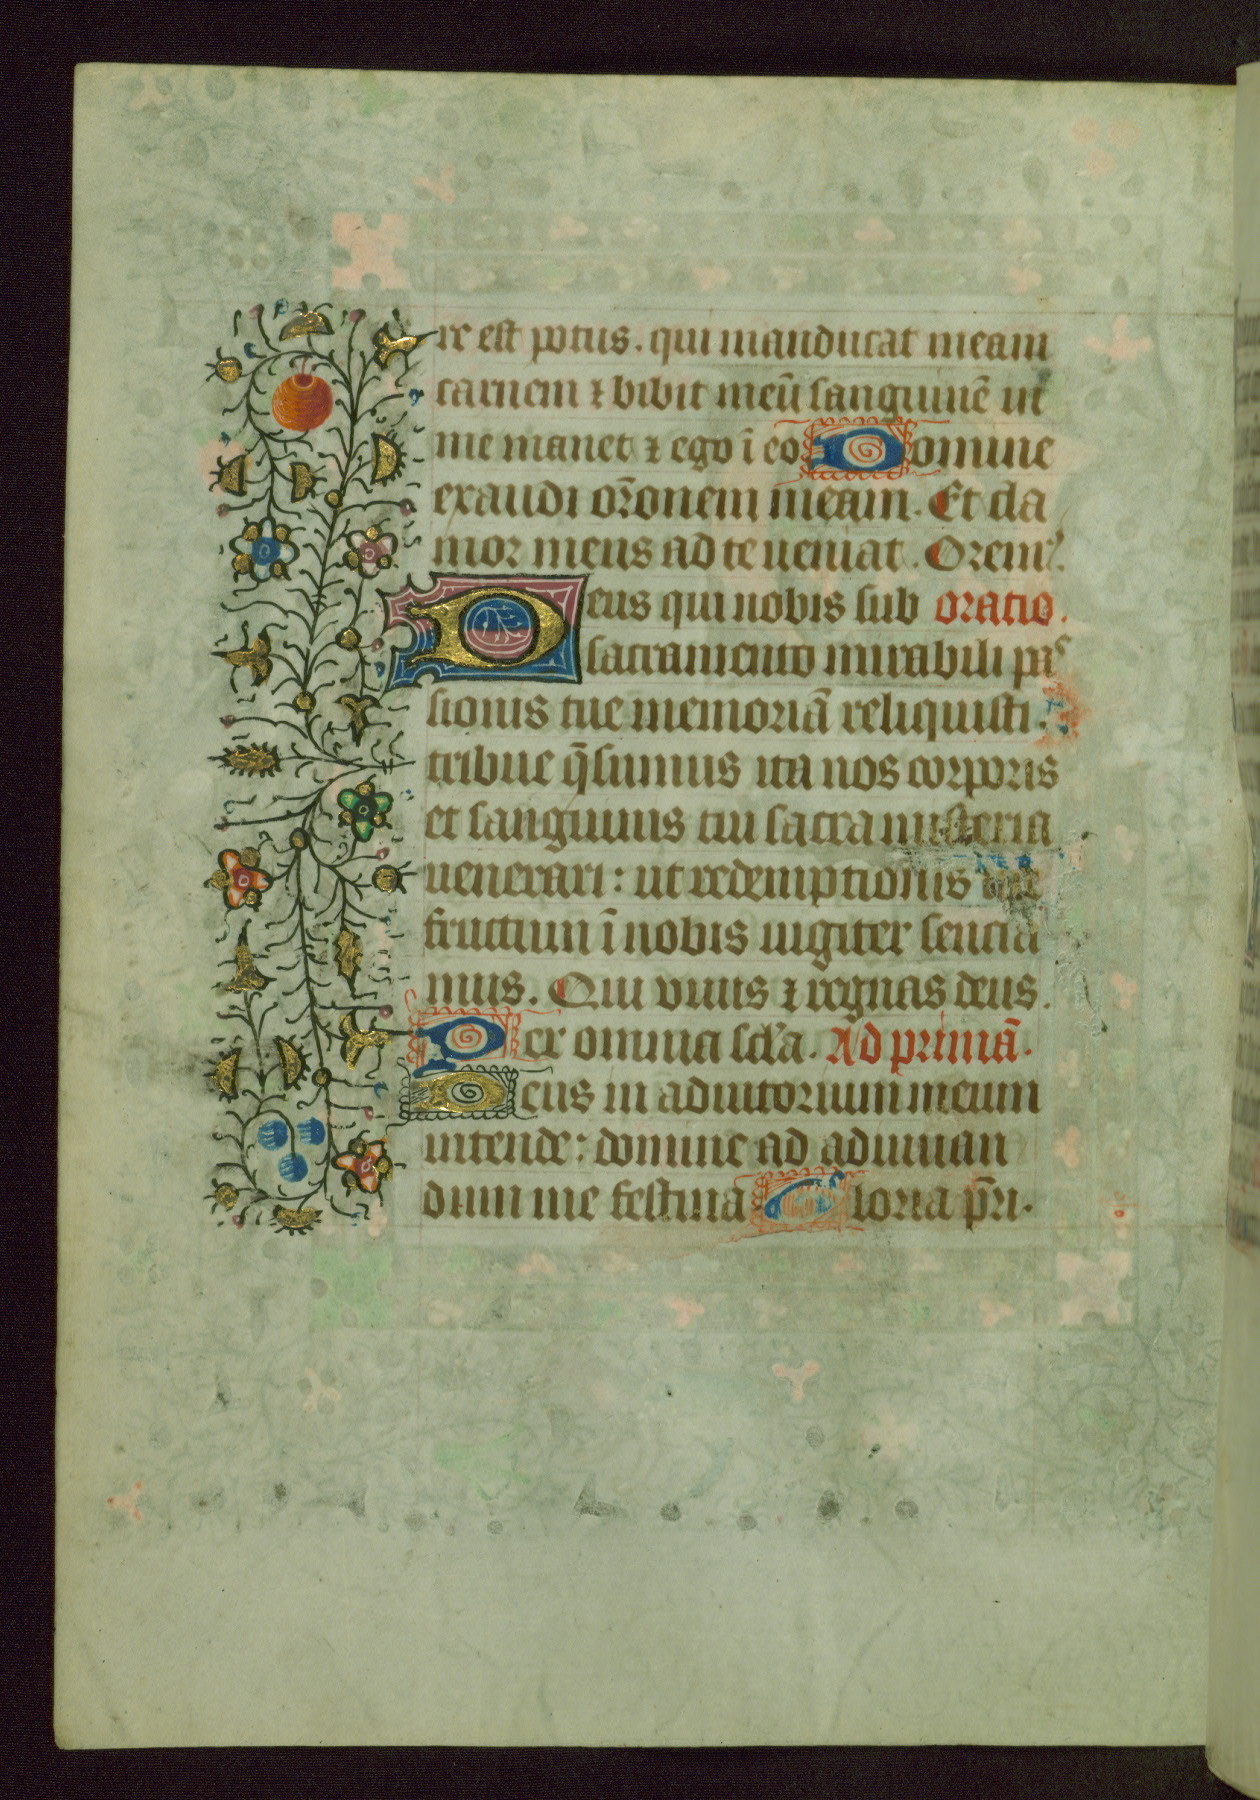 re est potus. qui manducat meam
carnem ⁊ bibit meū sanguinē in
me manet ⁊ ego ī eo Domine
exaudi or̄onem meam. Et cla
mor meus ad te ueniat. Orem9.
Deus qui nobis sub oratio.
sacramento mirabili pas
sionis tue memoriā reliquisti.
tribue q̄sumus ita nos corporis
et sanguinis tui sacra misteria
uenerari: ut redemptionis tue
fructum ī nobis iugiter sencia
mus. Qui viuis ⁊ regnas deus.
Per omnia scl̄a. Ad primā.
Deus in adiutorium meum
intende: domine ad adiuuan
dum me festina Gloria pr̄i.